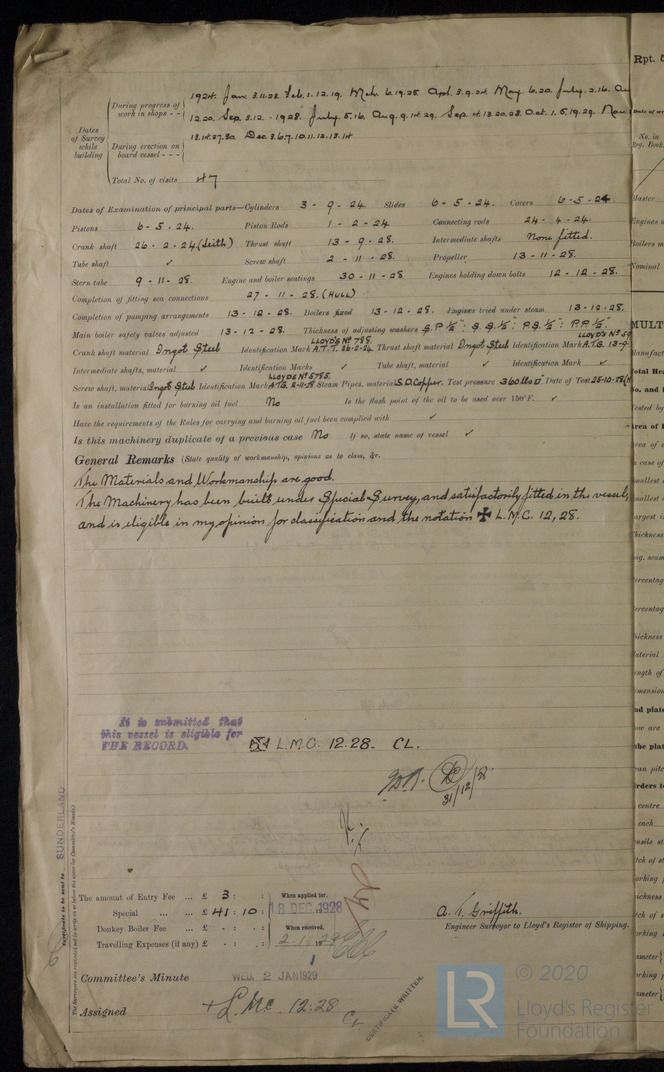 During progress of work in shops - - 1924. Jan. 3.11.23. Feb. 1.12.19. Mch. 6.19.25. Apl. 3.9.24. May 6.20. July. 2.16.
12.20. Sep. 3.12. - 1928. July. 5.16. Aug. 9.14.29. Sep. 14.18.20.28. Oct. 1.5.19.29. Nov
Dates of Survey while building
During erection on board vessel - - - 13.14.27.30. Dec. 3.6.7.10.11.12.13.14
Total No. of visits 47
Dates of Examination of principal parts—Cylinders 3 - 9 - 24 Slides 6 - 5 - 24. Covers 6-5-24
Pistons 6-5-24. Piston Rods 1 - 2 - 24 Connecting rods 24 - 4 - 24.
Crank shaft 26-2-24 (Leith) Thrust shaft 13 - 9 - 28. Intermediate shafts None fitted.
Tube shaft ✓ Screw shaft 2 - 11 - 28. Propeller 13 - 11 - 28.
Stern tube 9 - 11 - 28. Engine and boiler seatings 30 - 11 - 28 Engines holding down bolts 12 - 12 - 28.
Completion of fitting sea connections 27 - 11 - 28. (HULL)
Completion of pumping arrangements 13 - 12 - 28. Boilers fixed 13 - 12 - 28. Engines tried under steam 13-12-28.
Main boiler safety valves adjusted 13 - 12 - 28. Thickness of adjusting washers
Crank shaft material Ingot Steel Identification Mark LLOYD'S Nº 789. A.T.T. 26-2-24 Thrust shaft material Ingot Steel Identification Mark A.T.G. 13-9-
Intermediate shafts, material ✓ Identification Marks ✓ Tube shaft, material ✓ Identification Mark ✓
Screw shaft, material Ingot Steel Identification Mark LLOYD'S Nº 5785. A.T.G. 2-11-28 Steam Pipes, material S.D. Copper. Test pressure 360 lbs □" Date of Test 25-10-28
Is an installation fitted for burning oil fuel No Is the flash point of the oil to be used over 150°F. ✓
Have the requirements of the Rules for carrying and burning oil fuel been complied with ✓
Is this machinery duplicate of a previous case No If so, state name of vessel ✓
General Remarks (State quality of workmanship, opinions as to class, &c.
The Materials and Workmanship are good.
The Machinery has been built under Special Survey, and satisfactorily fitted in the vessel,
and is eligible in my opinion for classification and the notation ✠ L.M.C. 12,28.
It is submitted that
this vessel is eligible for
THE RECORD.
✠ L.M.C. 12.28. CL.
31/12/28
SUNDERLAND
Certificate to be sent to
The amount of Entry Fee ... £ 3 : :
Special ... ... £ 41 : 10 :
Donkey Boiler Fee ... £ - : - :
Travelling Expenses (if any) £ - : - :
When applied for,
18 DEC 1928
When received,
A. T. Griffith.
Engineer Surveyor to Lloyd's Register of Shipping.
Committee's Minute WED. 2 JAN 1929
Assigned + L.M.C. 12:28 CL
CERTIFICATE WRITTEN.
Rpt.
MULT
© 2020
LR Lloyd's Register
Foundation